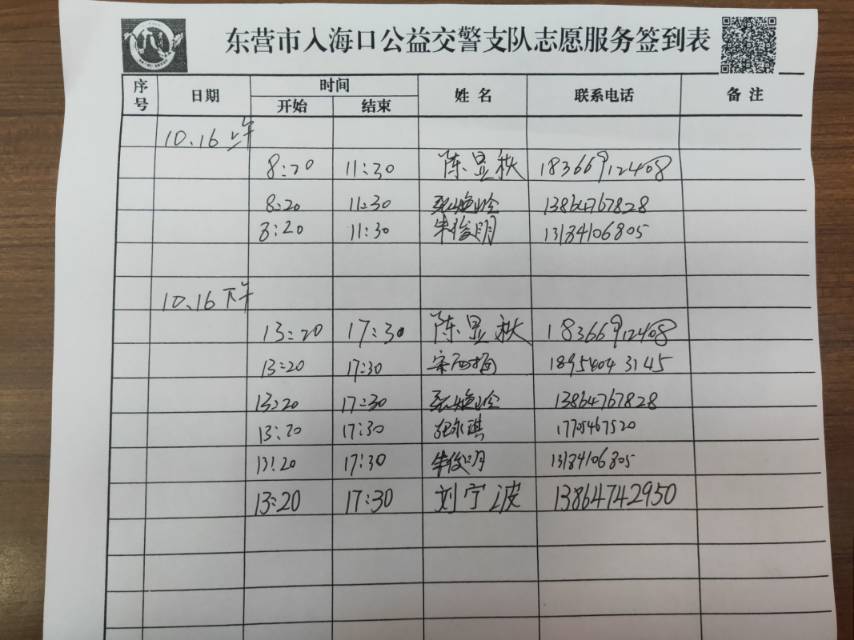 东营市入海口公益交警支队志愿服务签到表
序号 日期 时间 开始 结束 姓名 联系电话 备注
10.16 上午
8:20 11:30 陈显秋 18366912408
8:20 11:30 13864767828
8:20 11:30 朱俊明 13184106805
10.16 下午
13:20 17:30 陈显秋 18366912408
13:20 17:30 18954043145
13:20 17:30 13864767828
13:20 17:30 17705467520
13:20 17:30 朱俊明 13184106805
13:20 17:30 刘宁波 13864742950